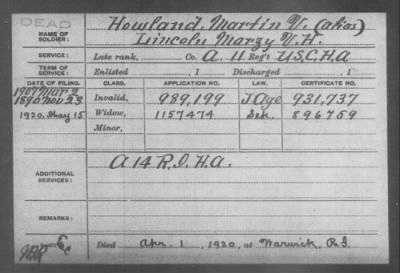 DEAD
NAME OF SOLDIER: Howland, Martin V. (alias)
Lincoln Marzy V. H.
SERVICE: Late rank, Co. A. 11 Reg't U.S.C.H.A
TERM OF SERVICE: Enlisted , 1 Discharged , 1
DATE OF FILING. CLASS. APPLICATION NO. LAW. CERTIFICATE NO.
1907 Mar 2
1890 Nov 23 Invalid, 989,199 J Age 931,737
1920, May 15 Widow, 1157474 896759
Minor,
ADDITIONAL SERVICES: A 14 R.I.H.A.
REMARKS:
Died Apr. 1, 1920, at Warwick, R.I.